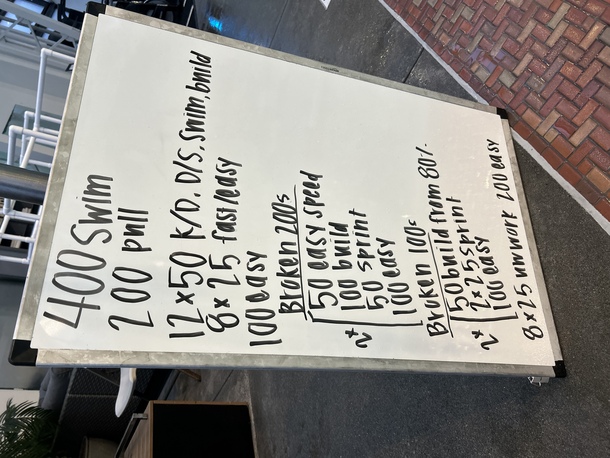 400 Swim
200 pull
12x50 K/D, D/S, Swim, build
8x25 fast/easy
100 easy
Broken 200s
50 easy speed
100 build
2x
50 sprint
100 easy
Broken 100s
50 build from 80%
2x
2x25 sprint
100 easy
8x25 uwwork 200 easy